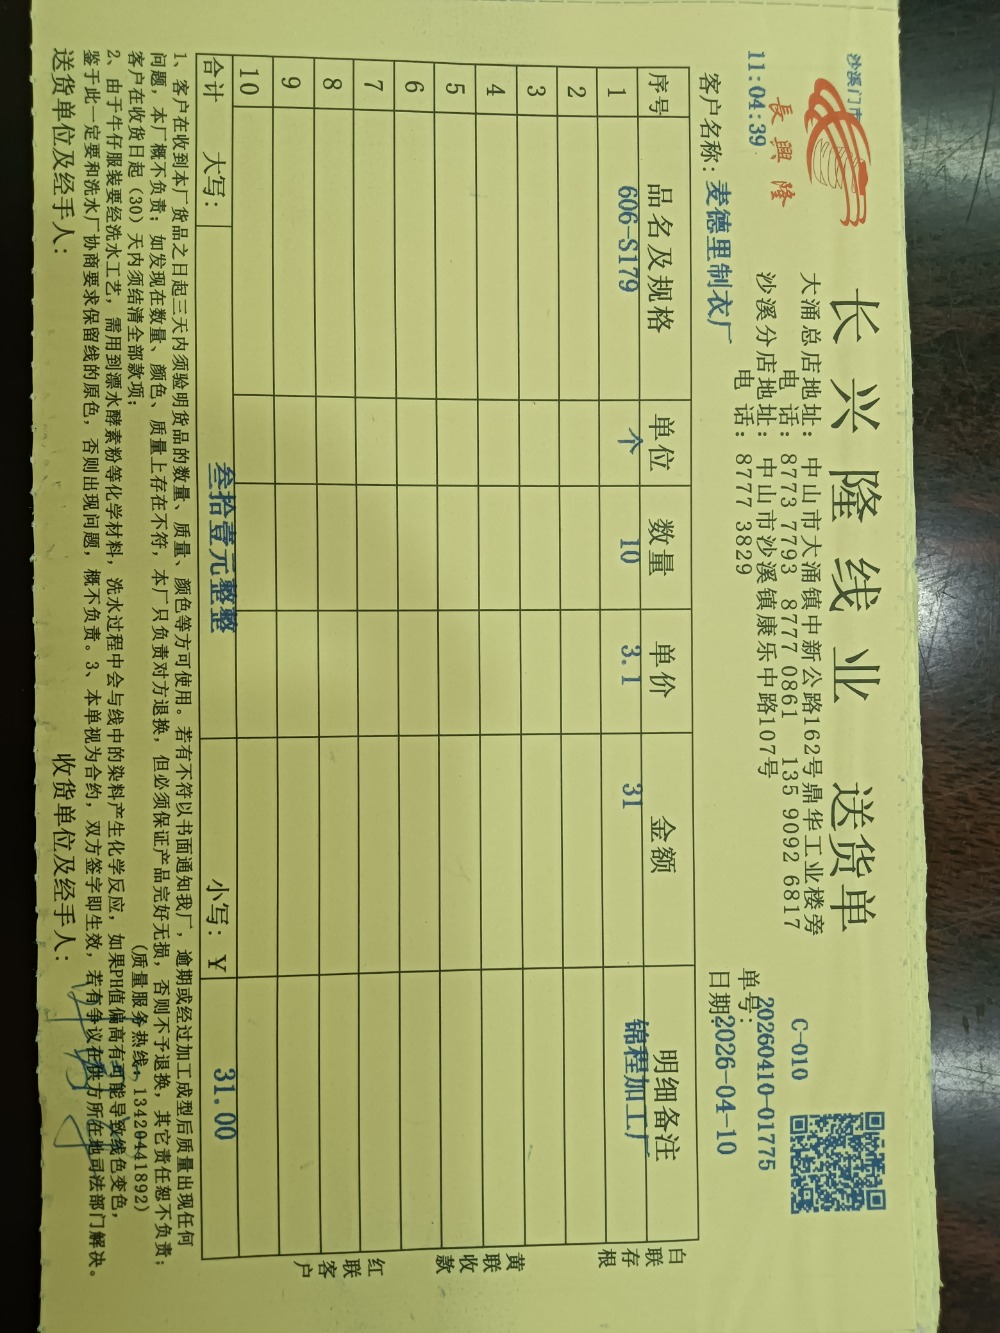 沙溪门市
長興隆
11:04:39
长兴隆线业 送货单
大涌总店地址: 中山市大涌镇中新公路162号鼎华工业楼旁
电 话: 8773 7793 8777 0861 135 9092 6817
沙溪分店地址: 中山市沙溪镇康乐中路107号
电 话: 8777 3829
C-010
单号: 20260410-01775
客户名称: 麦德里制衣厂
日期: 2026-04-10
序号 品名及规格 单位 数量 单价 金额 明细备注
1 606-S179 个 10 3.1 31 锦程加工厂
2
3
4
5
6
7
8
9
10
合计 大写: 叁拾壹元整整 小写: ¥ 31.00
白联存根
黄联收款
红联客户
1、客户在收到本厂货品之日起三天内须验明货品的数量、质量、颜色等方可使用。若有不符以书面通知我厂,逾期或经过加工成型后质量出现任何
问题,本厂概不负责;如发现在数量、颜色、质量上存在不符,本厂只负责对方退换,但必须保证产品完好无损,否则不予退换,其它责任恕不负责;
客户在收货日起(30)天内须结清全部款项; (质量服务热线:13420441892)
2、由于牛仔服装要经洗水工艺,需用到漂水酵素粉等化学材料,洗水过程中会与线中的染料产生化学反应,如果PH值偏高有可能导致线色变色,
鉴于此一定要和洗水厂协商要求保留线的原色,否则出现问题,概不负责。3、本单视为合约,双方签字即生效,若有争议在供方所在地司法部门解决。
送货单位及经手人: 收货单位及经手人: